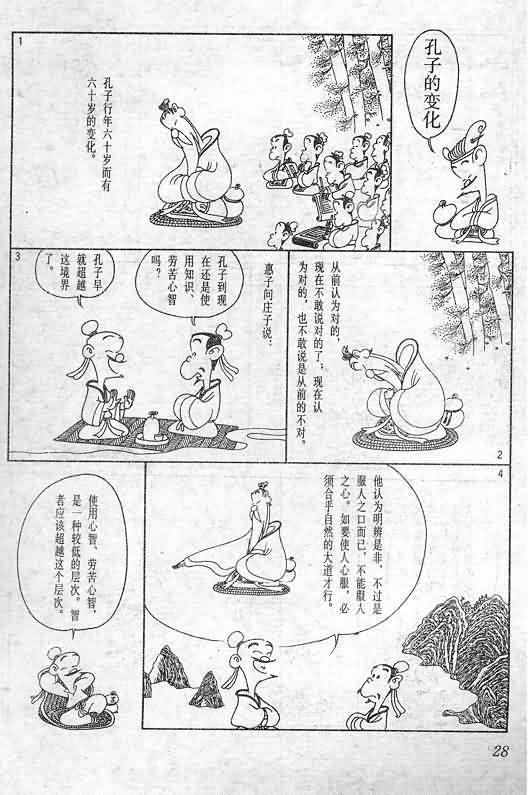 孔子的变化
1
孔子行年六十岁而有
六十岁的变化。
2
从前认为对的，
现在不敢说对的了；现在认
为对的，也不敢说是从前的不对。
3
惠子问庄子说：
孔子到现
在还是使
用知识、
劳苦心智
吗？
孔子早
就超越
这境界
了。
4
他认为明辨是非，不过是
服人之口而已，不能服人
之心。如要使人心服，必
须合乎自然的大道才行。
使用心智、劳苦心智，
是一种较低的层次。智
者应该超越这个层次。
28